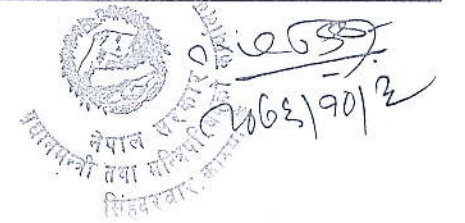 नेपाल सरकार
प्रधानमन्त्री तथा मन्त्रिपरिषद्को कार्यालय
सिंहदरवार,
२०७६|१०|२